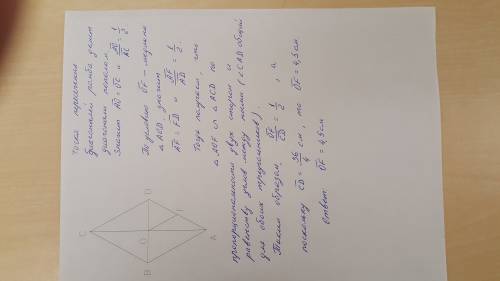 Точка пересечения
диагоналей ромба делит
диагонали пополам,
значит AO = OC и AO/AC = 1/2.
По условию OF – медиана
△ AOD, значит
AF = FD и AF/AD = 1/2
Тогда получаем, что
△ AOF ∽ △ ACD по
пропорциональности двух сторон и
равенству углов между ними (∠CAD общий
для обоих треугольников).
Таким образом, OF/CD = 1/2, а
поскольку CD = 36/4 см, то OF = 4,5 см.
Ответ: OF = 4,5 см
C
B
O
D
A